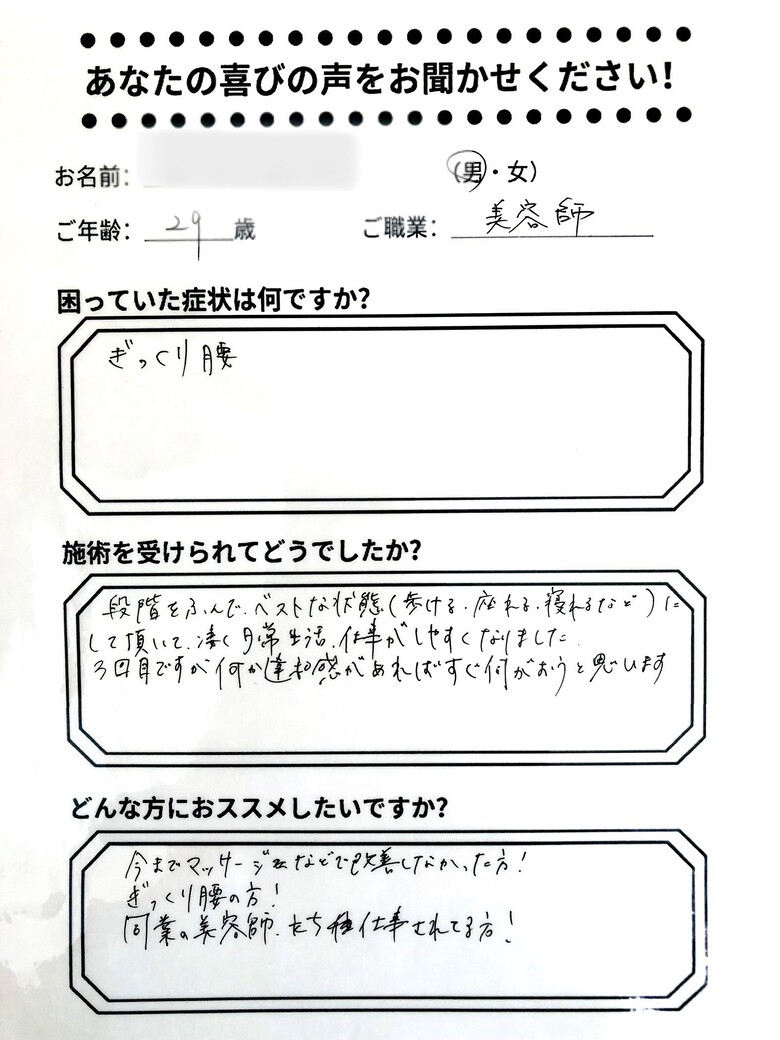 あなたの喜びの声をお聞かせください!
お名前:
(男・女)
ご年齢: 29 歳
ご職業: 美容師
困っていた症状は何ですか?
ぎっくり腰
施術を受けられてどうでしたか?
段階をふんで、ベストな状態(歩ける、座れる、寝れるなど)に
して頂いて、凄く日常生活、仕事がしやすくなりました
3回目ですが何か違和感があればすぐ伺がおうと思います
どんな方におススメしたいですか?
今までマッサージなどで改善しなかった方!
ぎっくり腰の方!
同業の美容師、たち仕事されてる方!